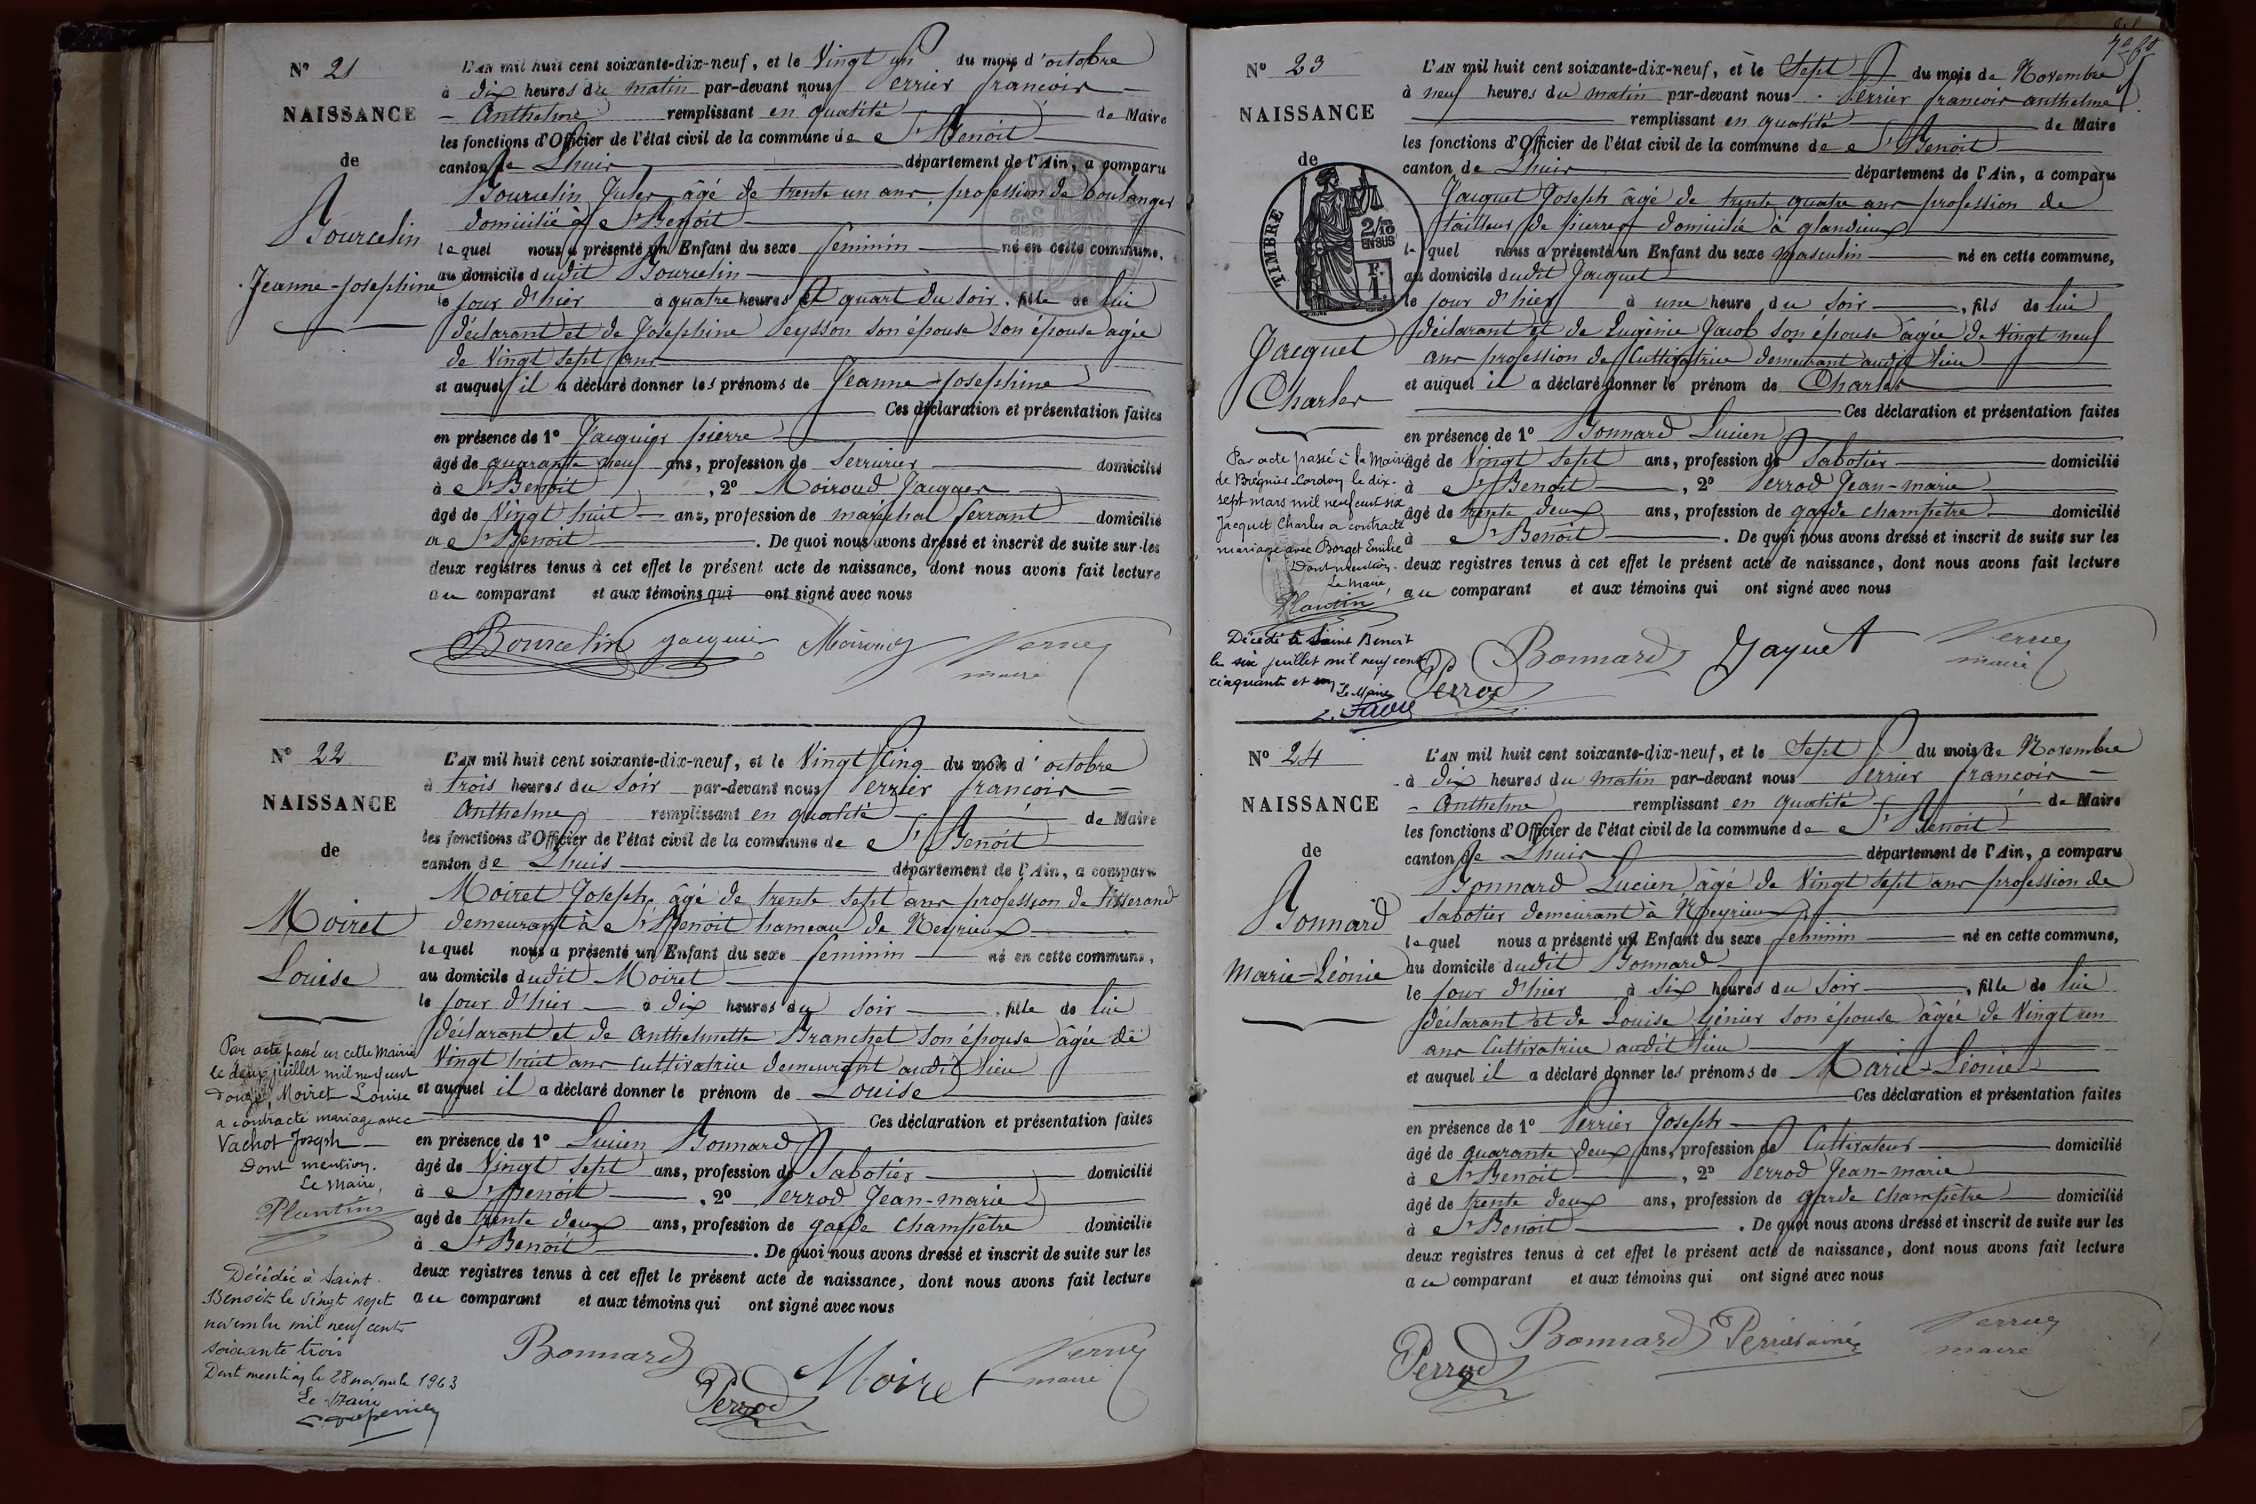 N° 21
NAISSANCE
de
Bourcelin
Jeanne-Josephine
L'AN mil huit cent soixante-dix-neuf, et le Vingt un du mois d'octobre
à dix heures du matin par-devant nous Perrier françois
Anthelme remplissant en qualité de Maire
les fonctions d'Officier de l'état civil de la commune de St Benoit
canton de Lhuis département de l'Ain, a comparu
Bourcelin Jules âgé de trente un ans, profession de boulanger
domicilié à St Benoit
lequel nous a présenté un Enfant du sexe feminin né en cette commune,
au domicile dudit Bourcelin
le jour d'hier à quatre heures et quart du soir, fille de lui
déclarant et de Josephine Peysson son épouse son épouse agée
de Vingt sept ans
et auquel il a déclaré donner les prénoms de Jeanne-Josephine
Ces déclaration et présentation faites
en présence de 1° Jacquier pierre
âgé de quarante neuf ans, profession de Serrurier domicilié
à St Benoit, 2° Moiroud Jacques
âgé de Vingt huit ans, profession de maréchal ferrant domicilié
à St Benoit. De quoi nous avons dressé et inscrit de suite sur les
deux registres tenus à cet effet le présent acte de naissance, dont nous avons fait lecture
au comparant et aux témoins qui ont signé avec nous
Bourcelin Jacquier Moiroud
maire
N° 22
NAISSANCE
de
Moiret
Louise
L'AN mil huit cent soixante-dix-neuf, et le Vingt Cinq du mois d'octobre
à trois heures du soir par-devant nous Perrier françois
Anthelme remplissant en qualité de Maire
les fonctions d'Officier de l'état civil de la commune de St Benoit
canton de Lhuis département de l'Ain, a comparu
Moiret Joseph, âgé de trente sept ans profession de tisserand
demeurant à St Benoit hameau de Neyrieux
lequel nous a présenté un Enfant du sexe feminin né en cette commune,
au domicile dudit Moiret
le jour d'hier à dix heures du soir, fille de lui
déclarant et de Anthelmette Branchet son épouse âgée de
Vingt huit ans cultivatrice demeurant audit lieu
et auquel il a déclaré donner le prénom de Louise
Ces déclaration et présentation faites
en présence de 1° Lucien Bonnard
âgé de Vingt sept ans, profession de Sabotier domicilié
à St Benoit, 2° Perrod Jean-marie
agé de trente deux ans, profession de garde champêtre domicilié
à St Benoit. De quoi nous avons dressé et inscrit de suite sur les
deux registres tenus à cet effet le présent acte de naissance, dont nous avons fait lecture
au comparant et aux témoins qui ont signé avec nous
Bonnard Perrod Moiret
maire
Par acte passé en cette Mairie
le deux juillet mil neuf cent
douze, Moiret Louise
a contracté mariage avec
Vachot Joseph
Dont mention.
Le Maire,
Plantin
Décédée à Saint
Benoit le vingt sept
novembre mil neuf cent
soixante trois
Dont mention le 28 novembre 1963
Le Maire
N° 23
NAISSANCE
de
TIMBRE
2/10
EN SUS
F.
1.
Jacquet
Charles
L'AN mil huit cent soixante-dix-neuf, et le Sept du mois de Novembre
à neuf heures du matin par-devant nous Perrier françois anthelme
remplissant en qualité de Maire
les fonctions d'Officier de l'état civil de la commune de St Benoit
canton de Lhuis département de l'Ain, a comparu
Jacquet Joseph âgé de trente quatre ans profession de
tailleur de pierres domicilié à glandieux
lequel nous a présenté un Enfant du sexe masculin né en cette commune,
au domicile dudit Jacquet
le jour d'hier à une heure du soir, fils de lui
déclarant et de Eugénie Jacob son épouse âgée de Vingt neuf
ans profession de Cultivatrice demeurant audit lieu
et auquel il a déclaré donner le prénom de Charles
Ces déclaration et présentation faites
en présence de 1° Bonnard Lucien
âgé de Vingt sept ans, profession de Sabotier domicilié
à St Benoit, 2° Perrod Jean-marie
âgé de trente deux ans, profession de garde champêtre domicilié
à St Benoit. De quoi nous avons dressé et inscrit de suite sur les
deux registres tenus à cet effet le présent acte de naissance, dont nous avons fait lecture
au comparant et aux témoins qui ont signé avec nous
Perrod Bonnard Jaquet
maire
Par acte passé à la Mairie
de Brégnier-Cordon le dix-
sept mars mil neuf cent six
Jacquet Charles a contracté
mariage avec Borget Emilie
Dont mention.
Le Maire,
Plantin
Décédé à Saint Benoit
le six juillet mil neuf cent
cinquante et un
Le Maire
N° 24
NAISSANCE
de
Bonnard
Marie-Léonie
L'AN mil huit cent soixante-dix-neuf, et le Sept du mois de Novembre
à dix heures du matin par-devant nous Perrier françois
Anthelme remplissant en qualité de Maire
les fonctions d'Officier de l'état civil de la commune de St Benoit
canton de Lhuis département de l'Ain, a comparu
Bonnard Lucien âgé de Vingt sept ans profession de
Sabotier demeurant à Neyrieux
lequel nous a présenté un Enfant du sexe feminin né en cette commune,
au domicile dudit Bonnard
le jour d'hier à six heures du soir, fille de lui
déclarant et de Louise Génier son épouse âgée de Vingt un
ans Cultivatrice audit lieu
et auquel il a déclaré donner les prénoms de Marie-Léonie
Ces déclaration et présentation faites
en présence de 1° Perrier Joseph
âgé de quarante deux ans, profession de Cultivateur domicilié
à St Benoit, 2° Perrod Jean-marie
âgé de trente deux ans, profession de garde champêtre domicilié
à St Benoit. De quoi nous avons dressé et inscrit de suite sur les
deux registres tenus à cet effet le présent acte de naissance, dont nous avons fait lecture
au comparant et aux témoins qui ont signé avec nous
Perrod Bonnard Perrier ainé
maire